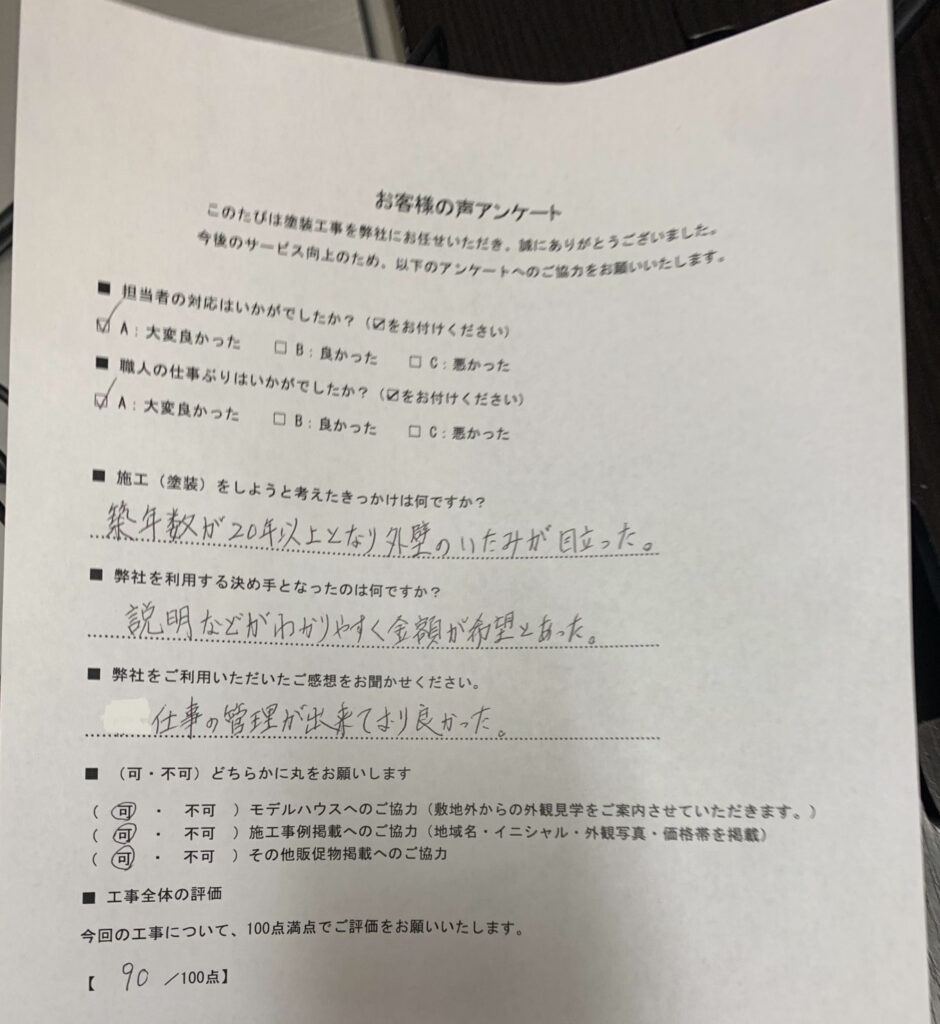 お客様の声アンケート
このたびは塗装工事を弊社にお任せいただき、誠にありがとうございました。
今後のサービス向上のため、以下のアンケートへのご協力をお願いいたします。
■ 担当者の対応はいかがでしたか？（☑をお付けください）
☑ A：大変良かった　□ B：良かった　□ C：悪かった
■ 職人の仕事ぶりはいかがでしたか？（☑をお付けください）
☑ A：大変良かった　□ B：良かった　□ C：悪かった
■ 施工（塗装）をしようと考えたきっかけは何ですか？
築年数が20年以上となり外壁のいたみが目立った。
■ 弊社を利用する決め手となったのは何ですか？
説明などがわかりやすく金額が希望とあった。
■ 弊社をご利用いただいたご感想をお聞かせください。
仕事の管理が出来ており良かった。
■ （可・不可）どちらかに丸をお願いします
（ 可 ・ 不可 ）モデルハウスへのご協力（敷地外からの外観見学をご案内させていただきます。）
（ 可 ・ 不可 ）施工事例掲載へのご協力（地域名・イニシャル・外観写真・価格帯を掲載）
（ 可 ・ 不可 ）その他販促物掲載へのご協力
■ 工事全体の評価
今回の工事について、100点満点でご評価をお願いいたします。
【 90 ／100点】